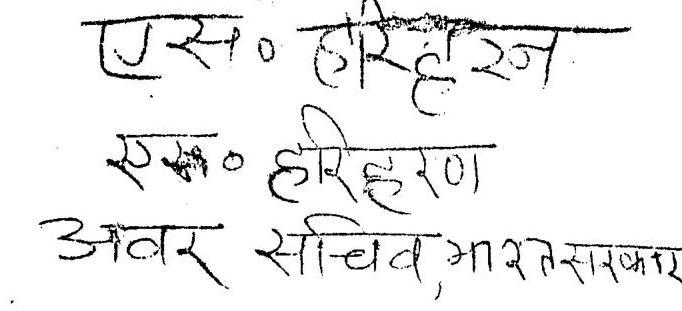 एस० हरिहरन
एस० हरिहरण
अवर सचिव, भारत सरकार